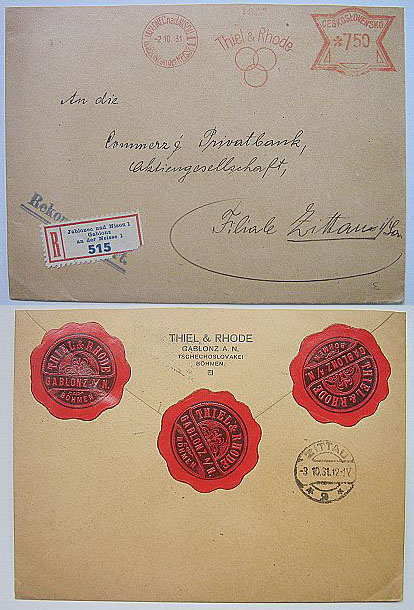 JABLONEC nad NISOU 1
-2 10 31
Thiel & Rhode
ČESKOSLOVENSKO
*750
An die
Commerz & Privatbank,
Aktiengesellschaft,
Filiale Zittau i/Sa
R
Jablonec nad Nisou 1
Gablonz
an der Neisse 1
515
THIEL & RHODE
GABLONZ A. N.
TSCHECHOSLOVAKEI
BÖHMEN.
THIEL & RHODE
GABLONZ A/N.
BÖHMEN
THIEL & RHODE
GABLONZ A/N.
BÖHMEN
THIEL & RHODE
GABLONZ A/N.
BÖHMEN
ZITTAU
-3 10.31.12-1V
* 2 *